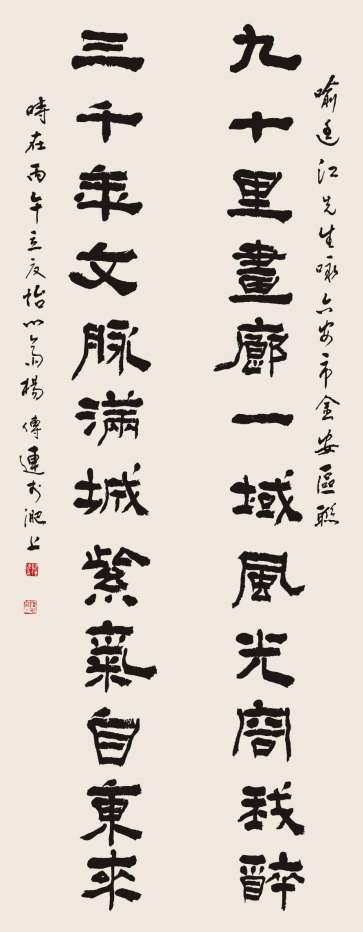 喻廷江先生咏六安市金安區聯
九十里畫廊一域風光容我醉
三千年文脉滿城紫氣自東來
時在丙午立夏怡心翁楊傳連於淝上